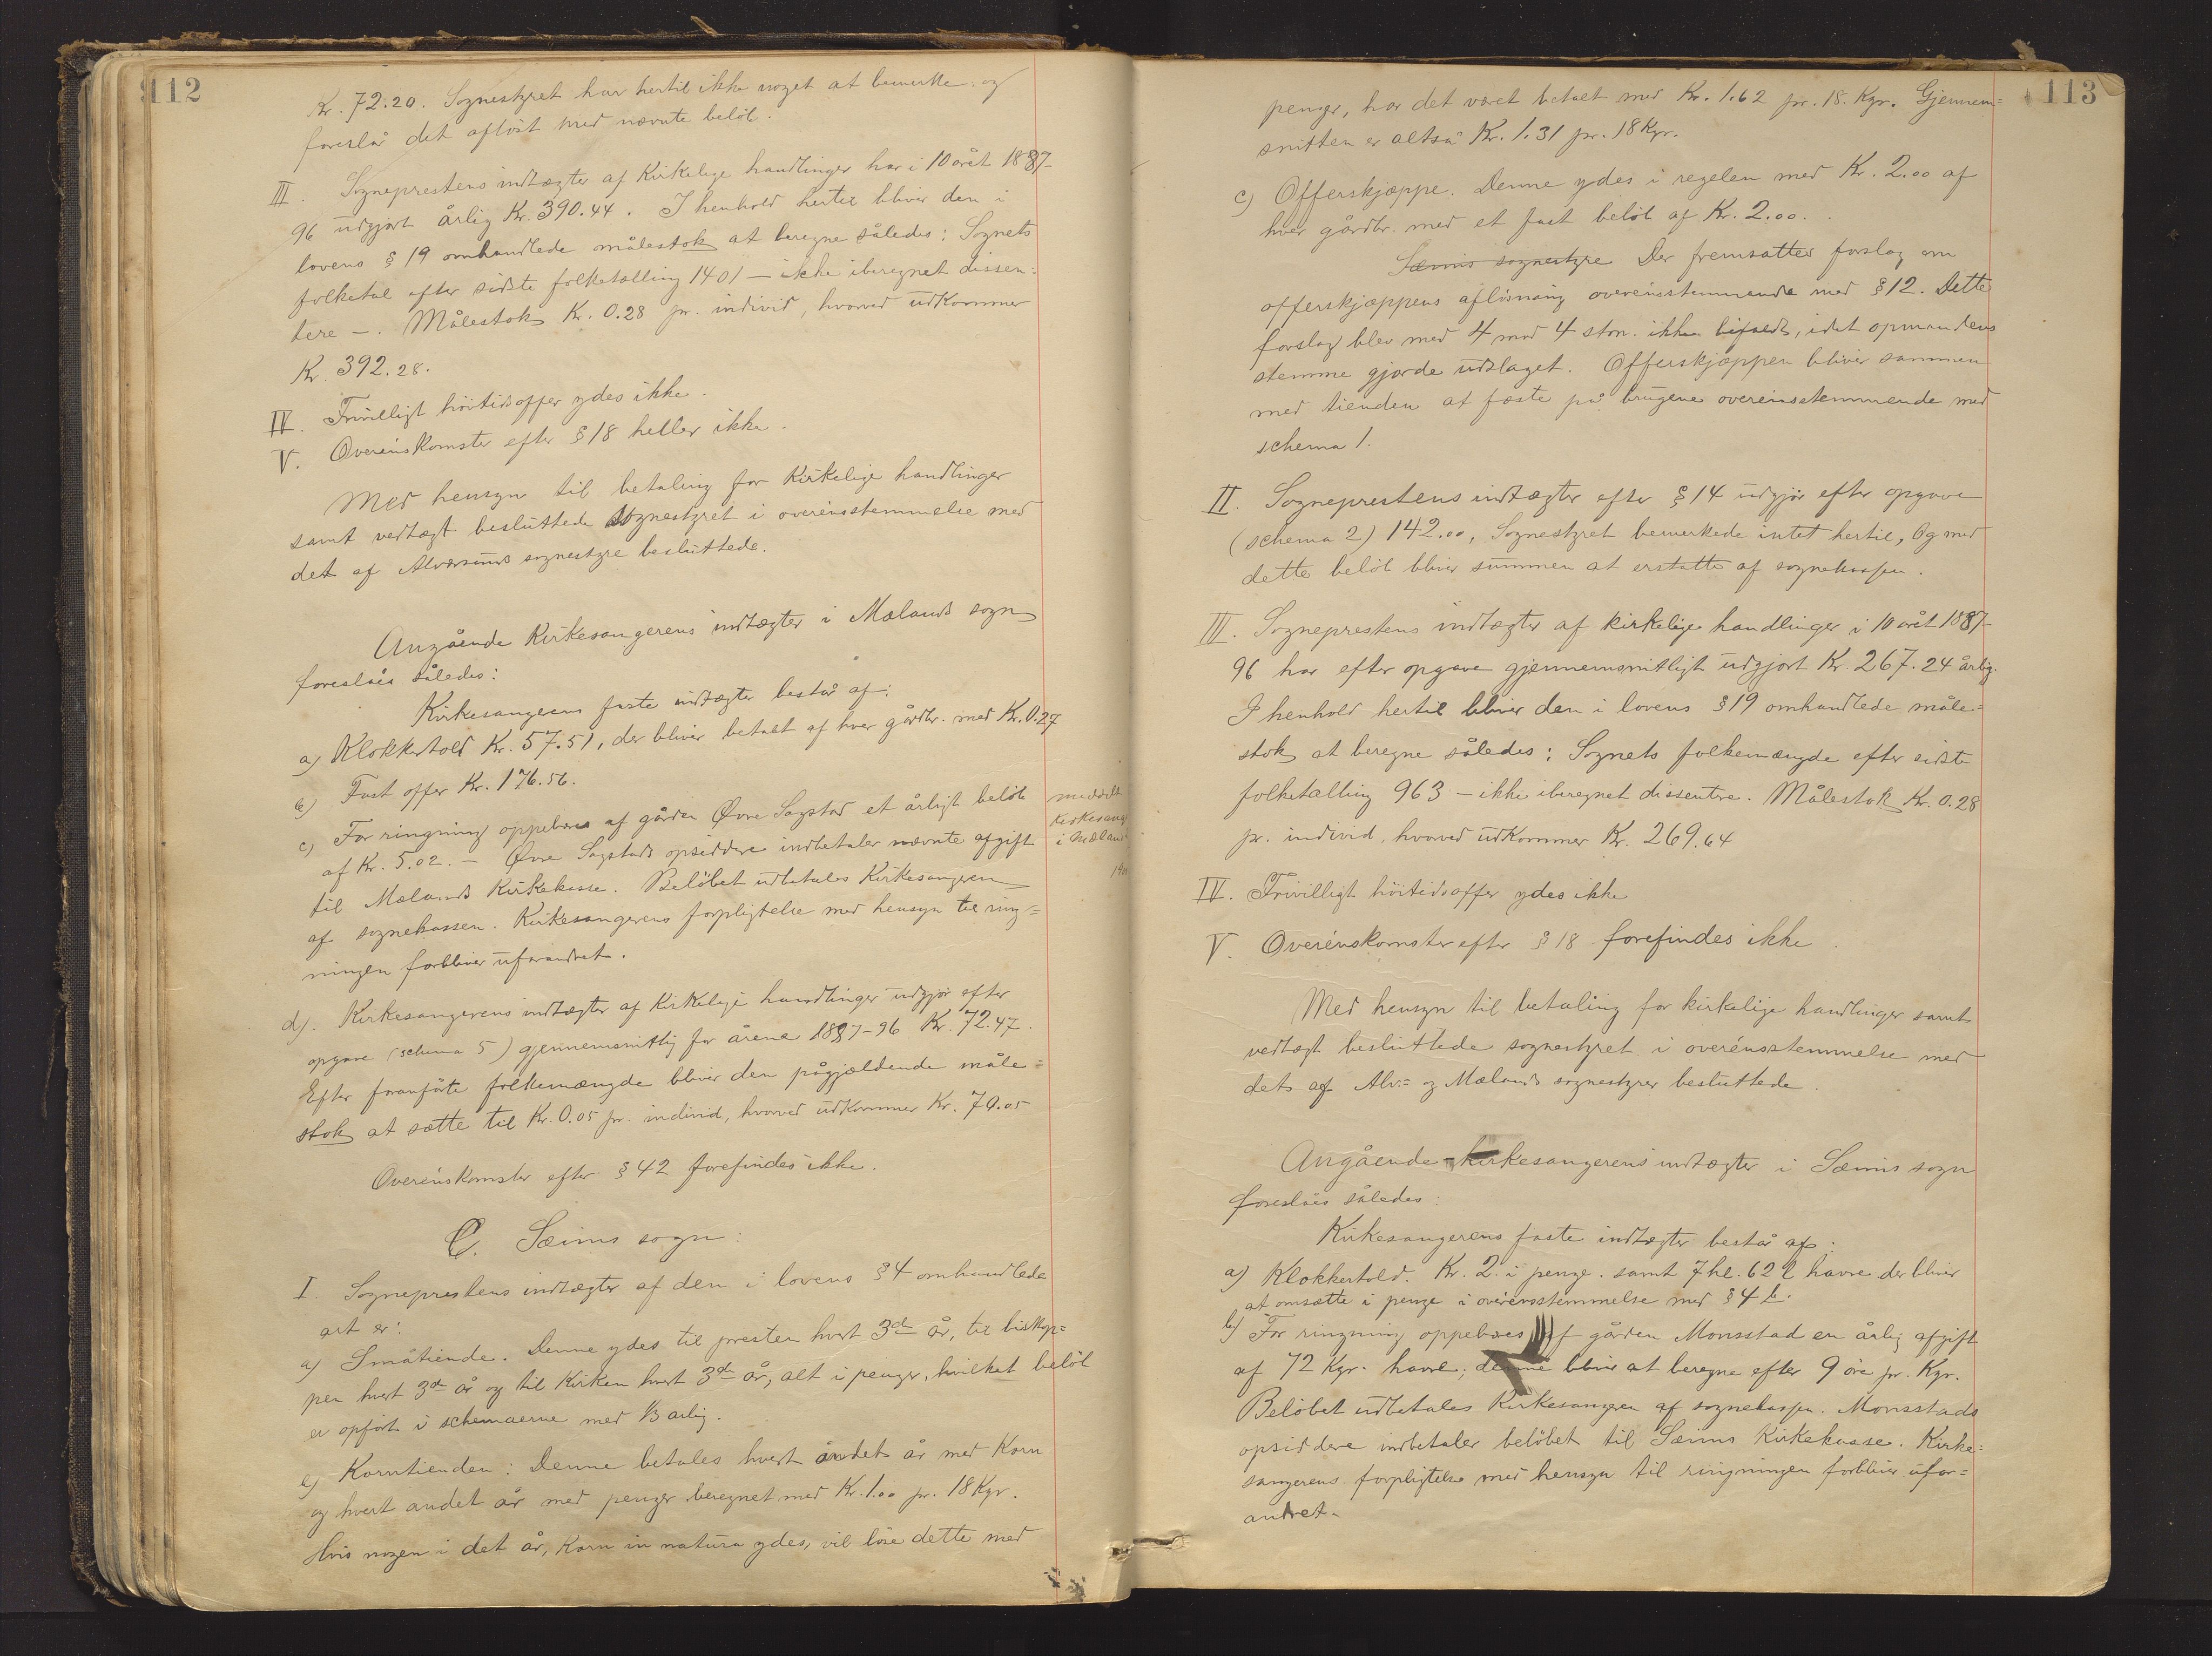 112
Kr. 72.20. Sognestyret har hertil ikke noget at bemerke og
foreslår det afløst med nævnte beløb.
III. Sogneprestens indtægter af Kirkelige handlinger har i 10 året 1887-
96 udgjort årlig Kr. 390.44. I henhold hertil bliver den i
lovens § 19 omhandlede målestok at beregne således: Sognets
folketal efter sidste folketælling 1401 — ikke iberegnet dissen=
tere —. Målestok Kr. 0.28 pr. individ, hvorved udkommer
Kr. 392.28.
IV. Frivilligt höitidsoffer ydes ikke.
V. Overenskomster efter § 18 heller ikke.
Med hensyn til betaling for Kirkelige handlinger
samt vedtægt besluttede sognestyret i overensstemmelse med
det af Alversunds sognestyre besluttede.
Angående Kirkesangerens indtægter i Mælands sogn
foreslåes således:
Kirkesangerens faste indtægter består af:
a) Klokkertold Kr. 57.51, der bliver betalt af hver gårdbr. med Kr. 0.27
b) Fast offer Kr. 176.56.
c) For ringning oppebæres af gården Øvre Sagstad et årligt beløb
af Kr. 5.02. — Øvre Sagstads opsiddere indbetaler nævnte afgift
til Mælands Kirkekasse. Beløbet udbetales Kirkesangeren
af sognekassen. Kirkesangerens forpligtelse med hensyn til ring=
ningen forbliver uforandret.
meddelt
kirkesang
i Mæland
d). Kirkesangerens indtægter af Kirkelige handlinger udgjør efter
opgave (schema 5) gjennemsnitlig for årene 1887-96 Kr. 72.47.
Efter foranførte folkemængde bliver den pågjældende måle=
stok at sætte til Kr. 0.05 pr. individ, hvorved udkommer Kr. 70.05
Overenskomster efter § 42 forefindes ikke.
C. Sæims sogn:
I. Sogneprestens indtægter af den i lovens § 4 omhandlede
art er:
a) Småtiende. Denne ydes til presten hvert 3die år, til biskop=
pen hvert 3die år og til Kirken hvert 3die år, alt i penger, hvilket beløb
er opført i schemaerne med 1/3 årlig.
b) Korntienden: Denne betales hvert andet år med Korn
og hvert andet år med penger beregnet med Kr. 1.00 pr. 18 Kgr.
Hvis nogen i det år, Korn in natura ydes, vil løse dette med
113
penger, har det været betalt med Kr. 1.62 pr. 18 Kgr. Gjennem=
snitten er altså Kr. 1.31 pr. 18 Kgr.
c) Offerskjæppe. Denne ydes i regelen med Kr. 2.00 af
hver gårdbr. med et fast beløb af Kr. 2.00.
Sæims sognestyre Der fremsattes forslag om
offerskjæppens afløsning overensstemmende med § 12. Dette
forslag blev med 4 mod 4 stm. ikke bifaldt, idet opmandens
stemme gjorde udslaget. Offerskjæppen bliver sammen
med tienden at fæste på brugene overensstemmende med
schema 1.
II. Sogneprestens indtægter efter § 14 udgjør efter opgave
(schema 2) 142.00, Sognestyret bemerkede intet hertil, og med
dette beløb bliver summen at erstatte af sognekassen.
III. Sogneprestens indtægter af kirkelige handlinger i 10 året 1887-
96 har efter opgave gjennemsnitligt udgjort Kr. 267.24 årlig.
I henhold hertil bliver den i lovens § 19 omhandlede måle=
stok at beregne således: Sognets folkemængde efter sidste
folketælling 963 — ikke iberegnet dissentere. Målestok Kr. 0.28
pr. individ, hvorved udkommer Kr. 269.64
IV. Frivilligt höitidsoffer ydes ikke
V. Overenskomster efter § 18 forefindes ikke.
Med hensyn til betaling for kirkelige handlinger samt
vedtægt besluttede sognestyret i overensstemmelse med
det af Alv.= og Mælands sognestyrer besluttede.
Angående kirkesangerens indtægter i Sæims sogn
foreslåes således:
Kirkesangerens faste indtægter består af:
a) Klokkertold. Kr. 2. i penge. samt 7 hl. 62 l havre der bliver
at omsætte i penge i overensstemmelse med § 4 b.
b) For ringning oppebæres af gården Monsstad en årlig afgift
af 72 Kgr. havre; denne bliver at beregne efter 9 øre pr. Kgr.
Beløbet udbetales Kirkesangeren af sognekassen. Monsstads
opsiddere indbetaler beløbet til Sæims Kirkekasse. Kirke=
sangerens forpligtelse med hensyn til ringningen forbliver ufor=
andret.